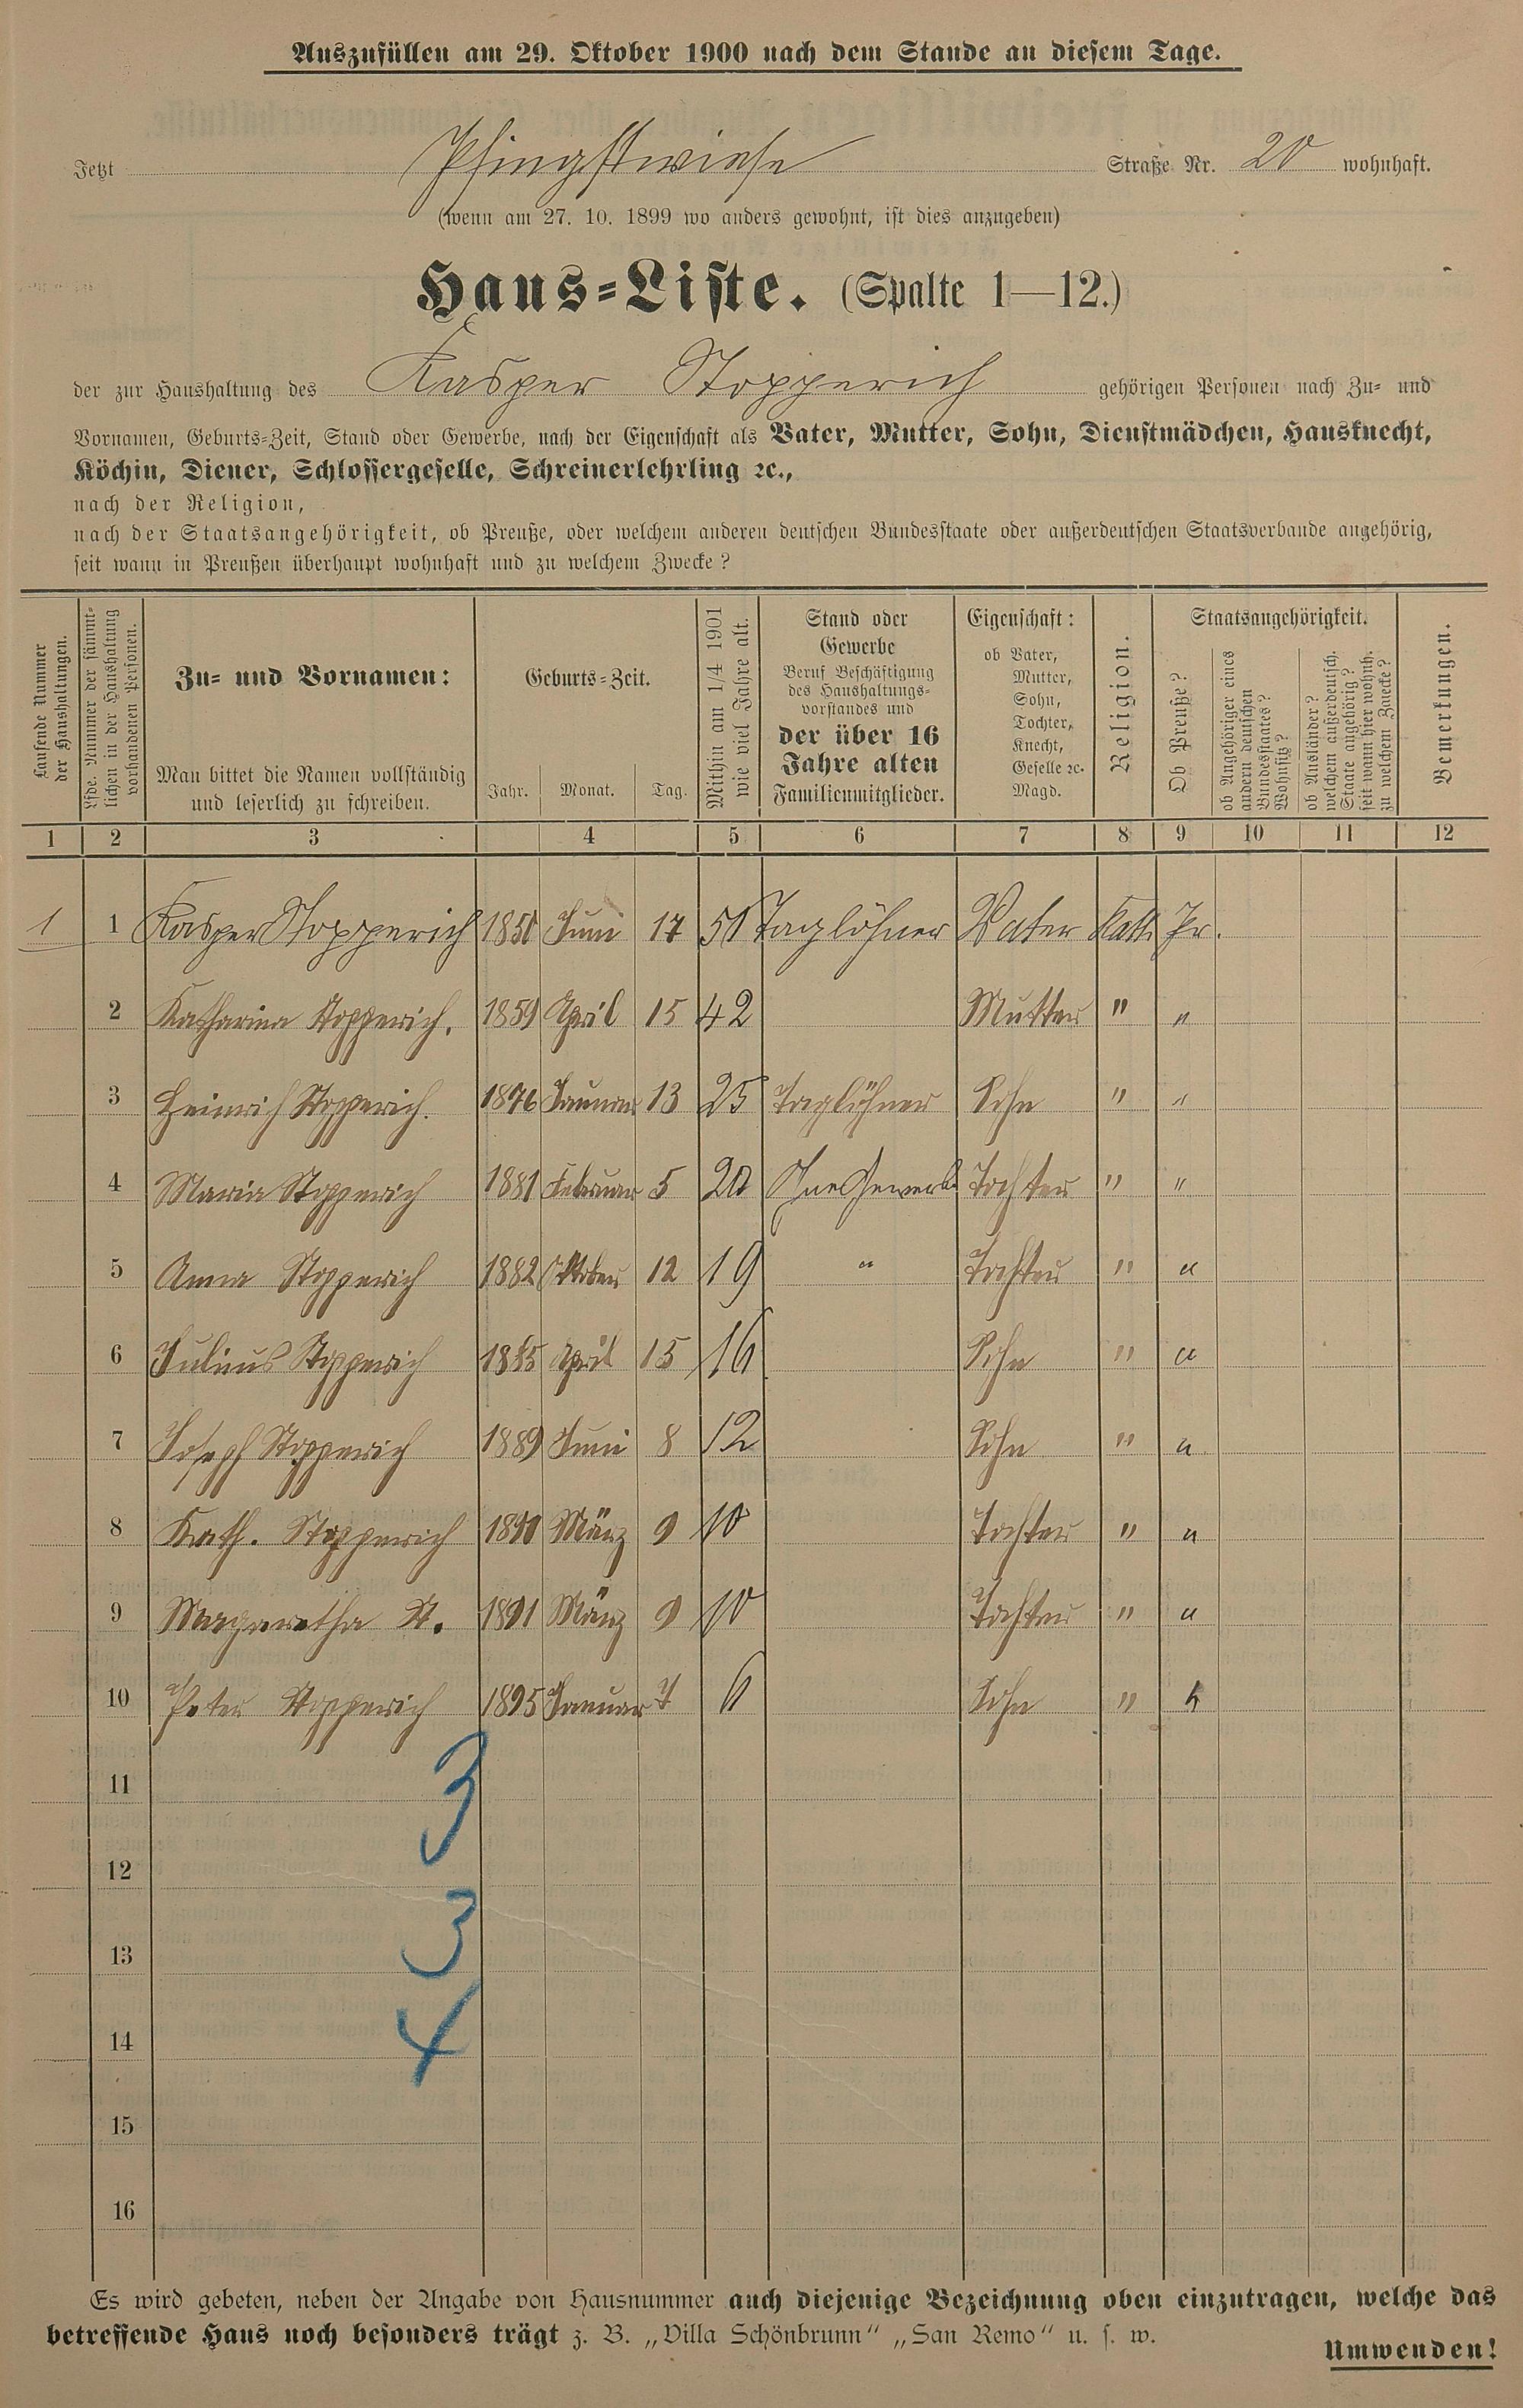 Auszufüllen am 29. Oktober 1900 nach dem Stande an diesem Tage.
Jetzt Pfingstwiese Straße Nr. 20 wohnhaft.
(wenn am 27. 10. 1899 wo anders gewohnt, ist dies anzugeben)
Haus=Liste. (Spalte 1—12.)
der zur Haushaltung des Kasper Stopperich gehörigen Personen nach Zu= und
Vornamen, Geburts=Zeit, Stand oder Gewerbe, nach der Eigenschaft als Vater, Mutter, Sohn, Dienstmädchen, Hausknecht,
Köchin, Diener, Schlossergeselle, Schreinerlehrling ꝛc.,
nach der Religion,
nach der Staatsangehörigkeit, ob Preuße, oder welchem anderen deutschen Bundesstaate oder außerdeutschen Staatsverbande angehörig,
seit wann in Preußen überhaupt wohnhaft und zu welchem Zwecke?
Laufende Nummer
der Haushaltungen.
Lfde. Nummer der sämmt-
lichen in der Haushaltung
vorhandenen Personen.
Zu= und Vornamen:
Man bittet die Namen vollständig
und leserlich zu schreiben.
Geburts=Zeit.
Jahr. Monat. Tag.
Mithin am 1/4 1901
wie viel Jahre alt.
Stand oder
Gewerbe
Beruf Beschäftigung
des Haushaltungs-
vorstandes und
der über 16
Jahre alten
Familienmitglieder.
Eigenschaft:
ob Vater,
Mutter,
Sohn,
Tochter,
Knecht,
Geselle ꝛc.
Magd.
Religion.
Staatsangehörigkeit.
Ob Preuße?
ob Angehöriger eines
andern deutschen
Bundesstaates?
Wohnsitz?
ob Ausländer?
welchem außerdeutsch.
Staate angehörig?
seit wann hier wohnh.
zu welchem Zwecke?
Bemerkungen.
1 2 3 4 5 6 7 8 9 10 11 12
1 1 Kasper Stopperich 1850 Juni 17 50 Taglöhner Vater Kath. Pr.
2 Katharina Stopperich. 1859 April 15 42 Mutter " "
3 Heinrich Stopperich. 1876 Januar 13 25 Taglöhner Sohn " "
4 Maria Stopperich 1881 Februar 5 20 Ohne Gewerbe Tochter " "
5 Anna Stopperich 1882 Oktober 12 19 " Tochter " "
6 Julius Stopperich 1885 April 15 16 Sohn " "
7 Joseph Stopperich 1889 Juni 8 12 Sohn " "
8 Kath. Stopperich 1890 März 9 10 Tochter " "
9 Margaretha St. 1891 März 9 10 Tochter " "
10 Peter Stopperich 1895 Januar 7 6 Sohn " "
11 3
12
13 3
14 4
15
16
Es wird gebeten, neben der Angabe von Hausnummer auch diejenige Bezeichnung oben einzutragen, welche das
betreffende Haus noch besonders trägt z. B. „Villa Schönbrunn“ „San Remo“ u. s. w.
Umwenden!